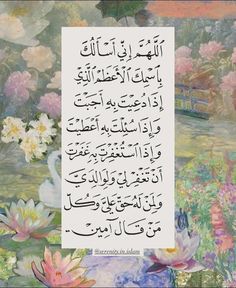 اللَّهُمَّ إِنِّي أَسْأَلُكَ
بِاسْمِكَ الْأَعْظَمِ الَّذِي
إِذَا دُعِيْتَ بِهِ أَجَبْتَ
وَإِذَا سُئِلْتَ بِهِ أَعْطَيْتَ
وَإِذَا اسْتُغْفِرْتَ بِهِ غَفَرْتَ
أَنْ تَغْفِرَ لِي وَلِوَالِدَيَّ
وَلِمَنْ لَهُ حَقٌّ عَلَيَّ وَكُلِّ
مَنْ قَالَ امِين ..
@serenity.in.islam